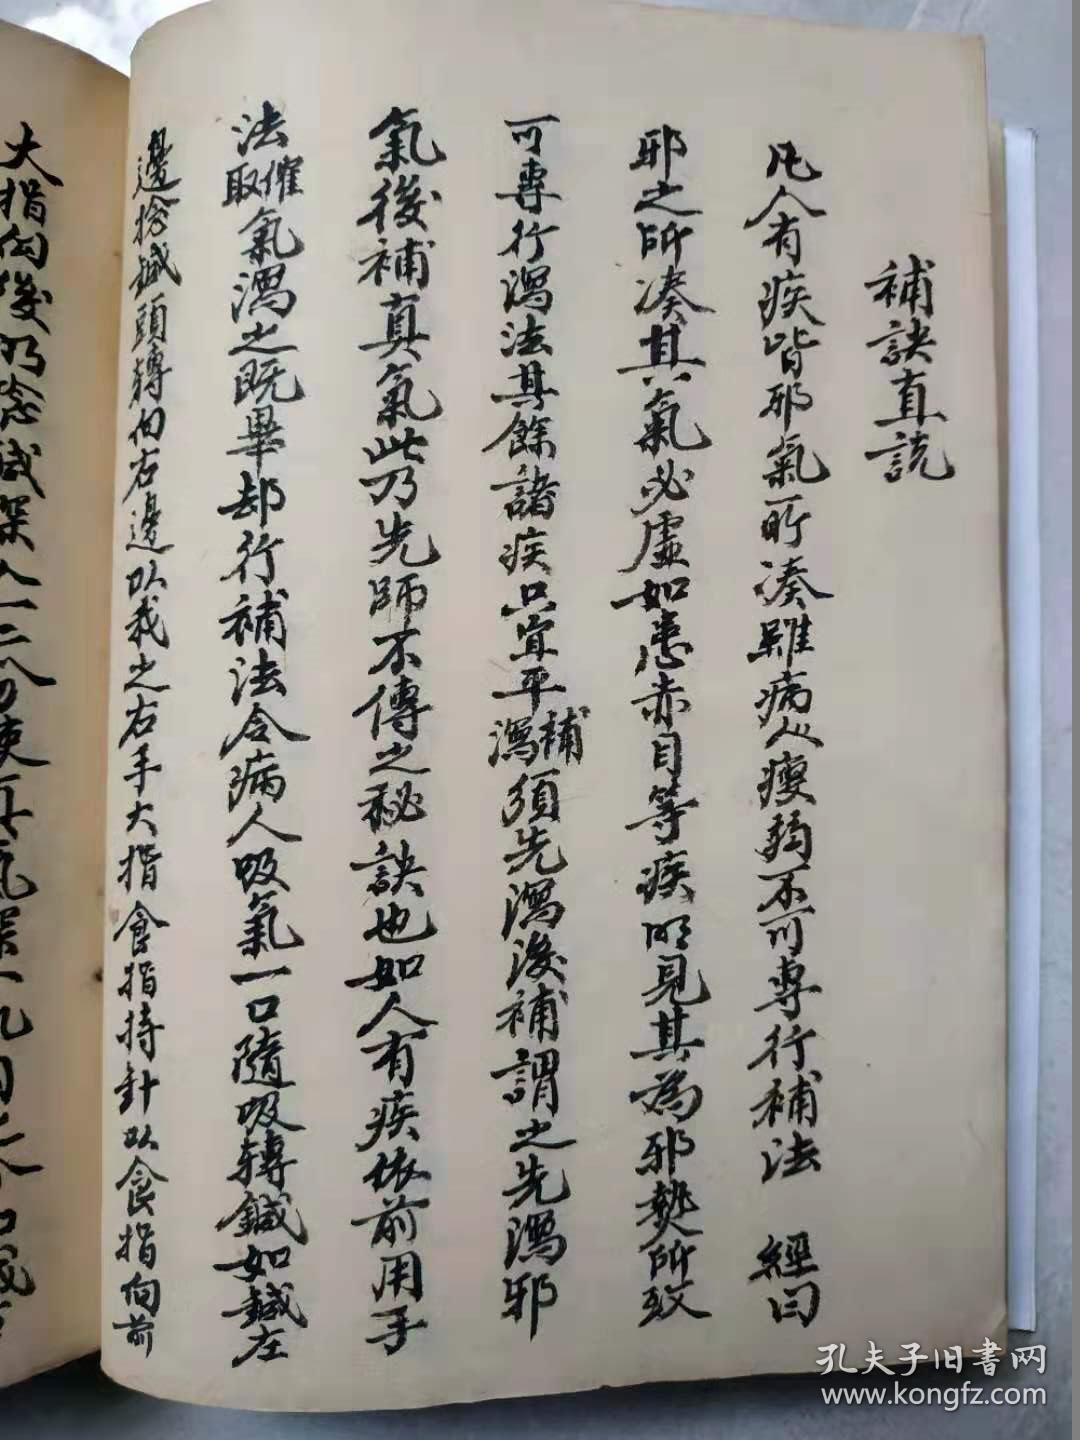 補訣直説
凡人有疾皆邪氣所凑雖病人瘦弱不可專行補法 經曰
邪之所凑其氣必虛如患赤目等疾明見其為邪熱所致
可專行瀉法其餘諸疾只宜平補瀉須先瀉後補謂之先瀉邪
氣後補真氣此乃先師不傳之秘訣也如人有疾依前用手
法催取氣瀉之既畢却行補法令病人吸氣一口隨吸轉鍼如鍼左
邊捻鍼頭轉向右邊以我之右手大指食指持針以食指向前
大指向後仍捻鍼深入一二分使真氣深
孔夫子旧書网
www.kongfz.com